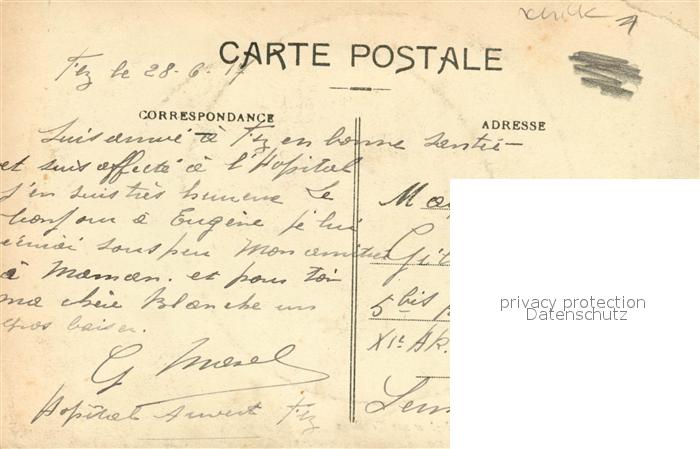 CARTE POSTALE
Fez le 28-6-17
CORRESPONDANCE
ADRESSE
Suis arrivé à Fez en bonne santé
et suis affecté à l'Hopital
j'en suis très heureux Le
bonjour à Eugène je lui
écrirai sous peu Mon amitié
à Maman. et pour toi
ma chère Blanche un
gros baiser.
G Morel
Hopital Auvert Fez
5 bis
XIe Ar.
privacy protection
Datenschutz